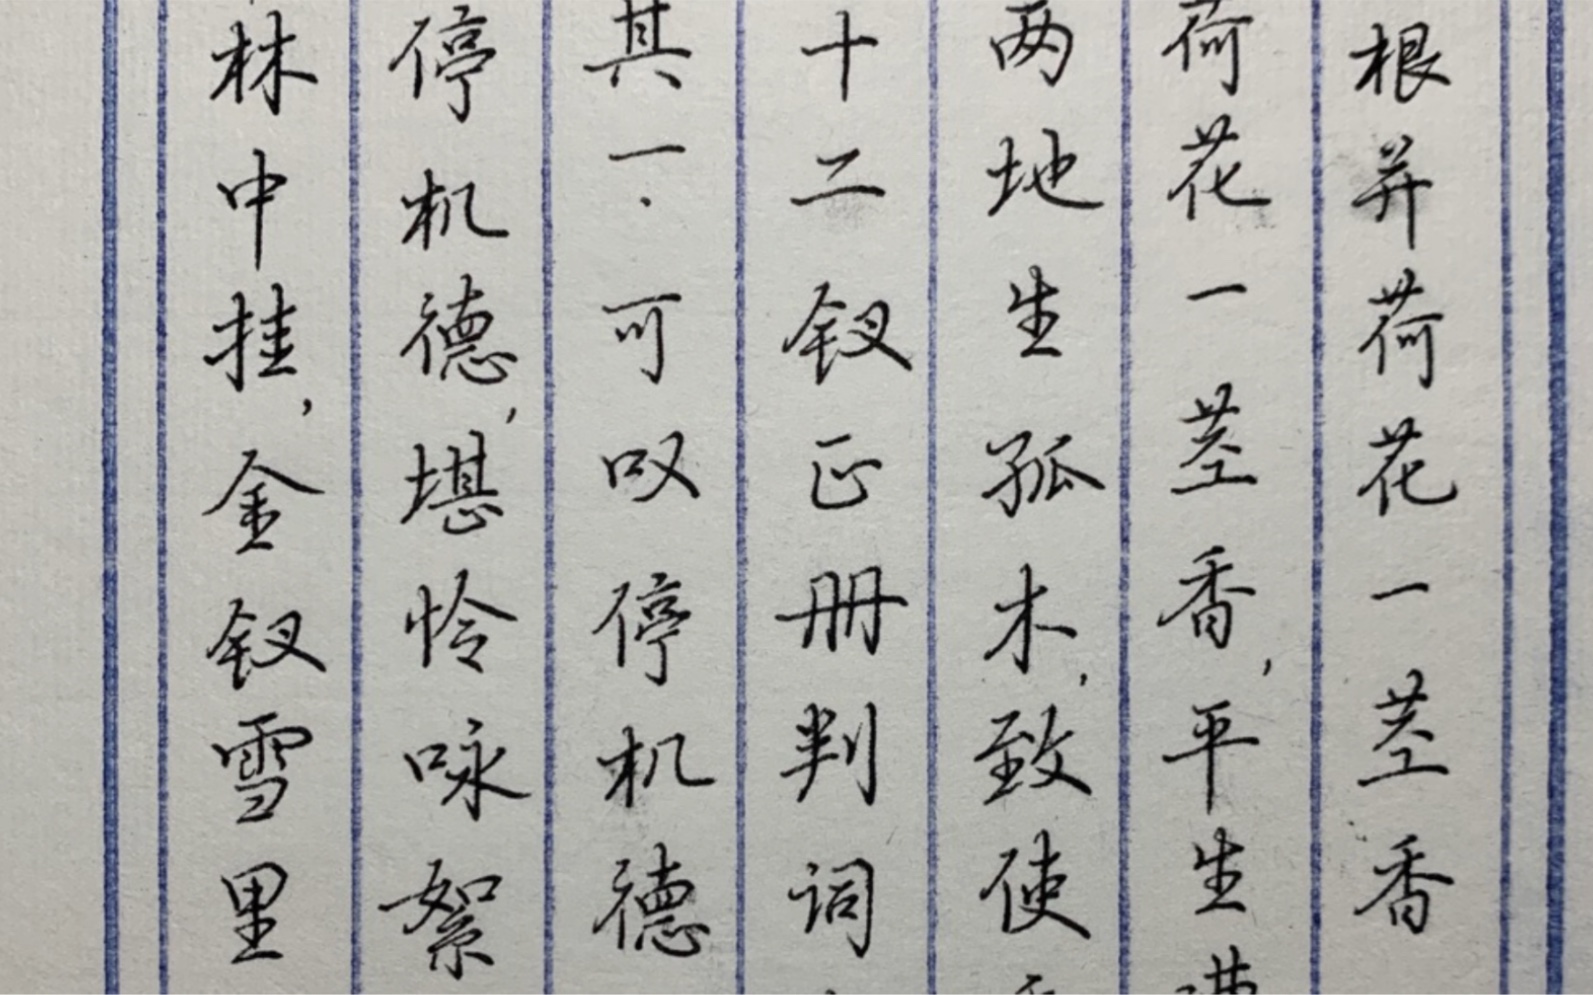 根并荷花一茎香
荷花一茎香,平生
两地生孤木,致使
十二钗正册判词
其一·可叹停机德
停机德,堪怜咏絮
林中挂,金钗雪里